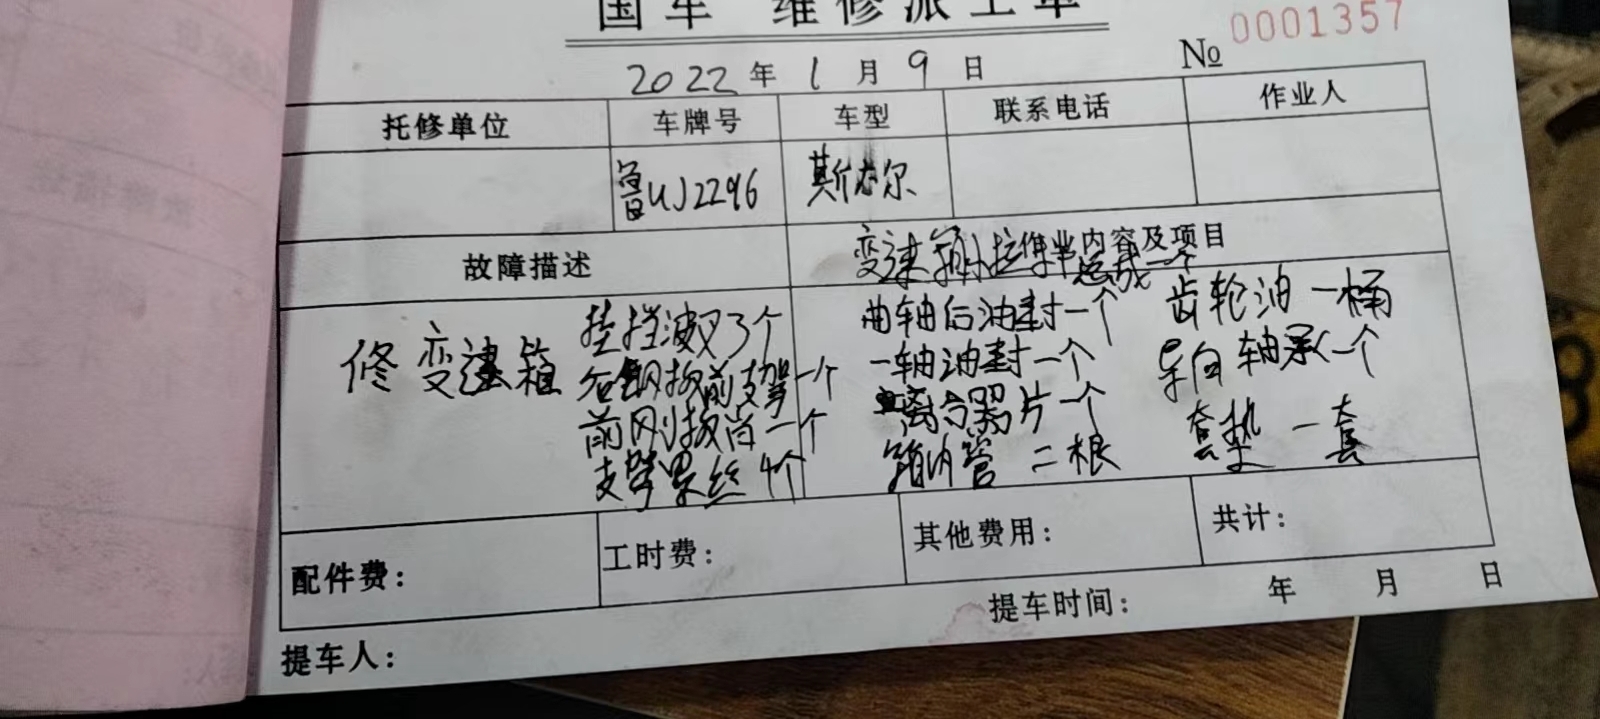 国车 维修派工单
№ 0001357
2022年 1月 9日
托修单位 车牌号 车型 联系电话 作业人
鲁UJ2296 斯太尔
故障描述 作业内容及项目
变速箱小拉 总成一个
修变速箱
挂挡波叉3个
后钢板前支架一个
前刚板肖一个
支架罗丝4个
曲轴后油封一个 齿轮油一桶
一轴油封一个 导向轴承一个
离合器片一个 套垫一套
箱内管二根
配件费: 工时费: 其他费用: 共计:
提车时间: 年 月 日
提车人: